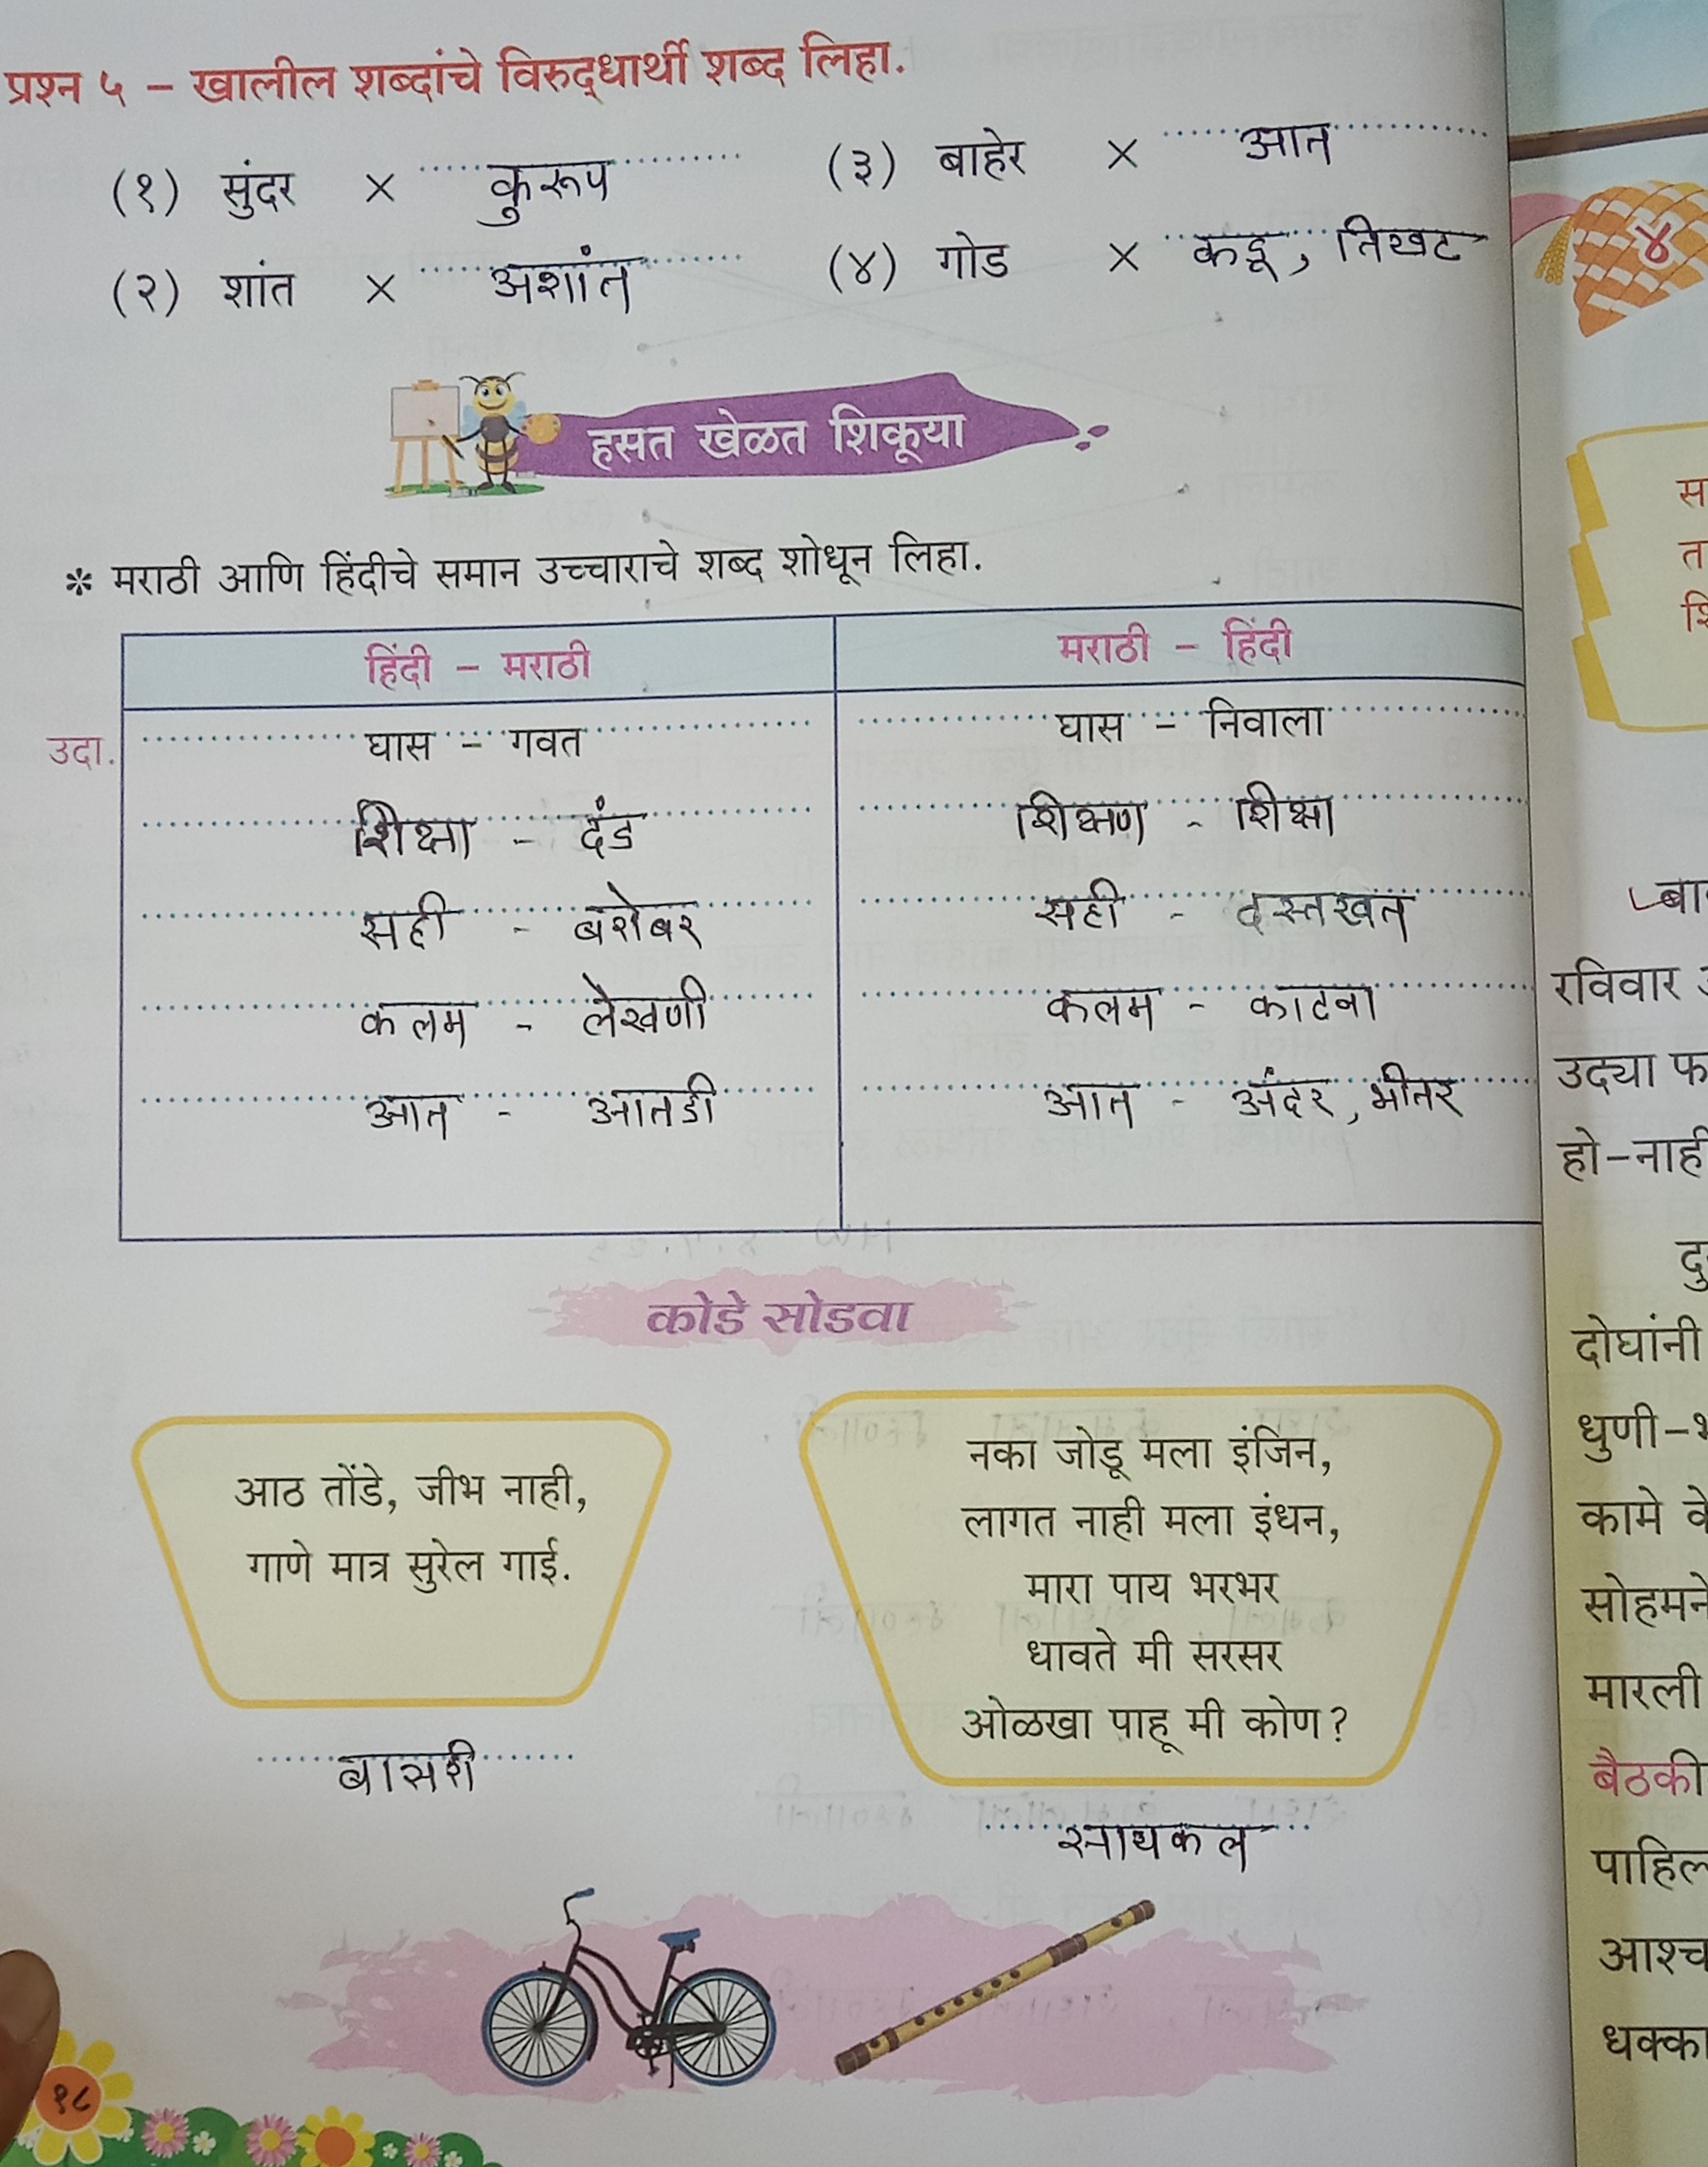 प्रश्न ५ – खालील शब्दांचे विरुद्धार्थी शब्द लिहा.
(१) सुंदर × कुरूप
(२) शांत × अशांत
(३) बाहेर × आत
(४) गोड × कडू, तिखट
हसत खेळत शिकूया
* मराठी आणि हिंदीचे समान उच्चाराचे शब्द शोधून लिहा.
हिंदी – मराठी मराठी – हिंदी
उदा. घास – गवत घास – निवाला
शिक्षा - दंड शिक्षण - शिक्षा
सही - बरोबर सही - दस्तखत
कलम - लेखणी कलम - काटवा
आत - आतडी आत - अंदर, भीतर
कोडे सोडवा
आठ तोंडे, जीभ नाही,
गाणे मात्र सुरेल गाई.
बासरी
नका जोडू मला इंजिन,
लागत नाही मला इंधन,
मारा पाय भरभर
धावते मी सरसर
ओळखा पाहू मी कोण?
सायकल
१८
४
रविवार
उद्या
हो-नाही
दोघांनी
धुणी-
कामे
सोहमने
मारली
बैठकी